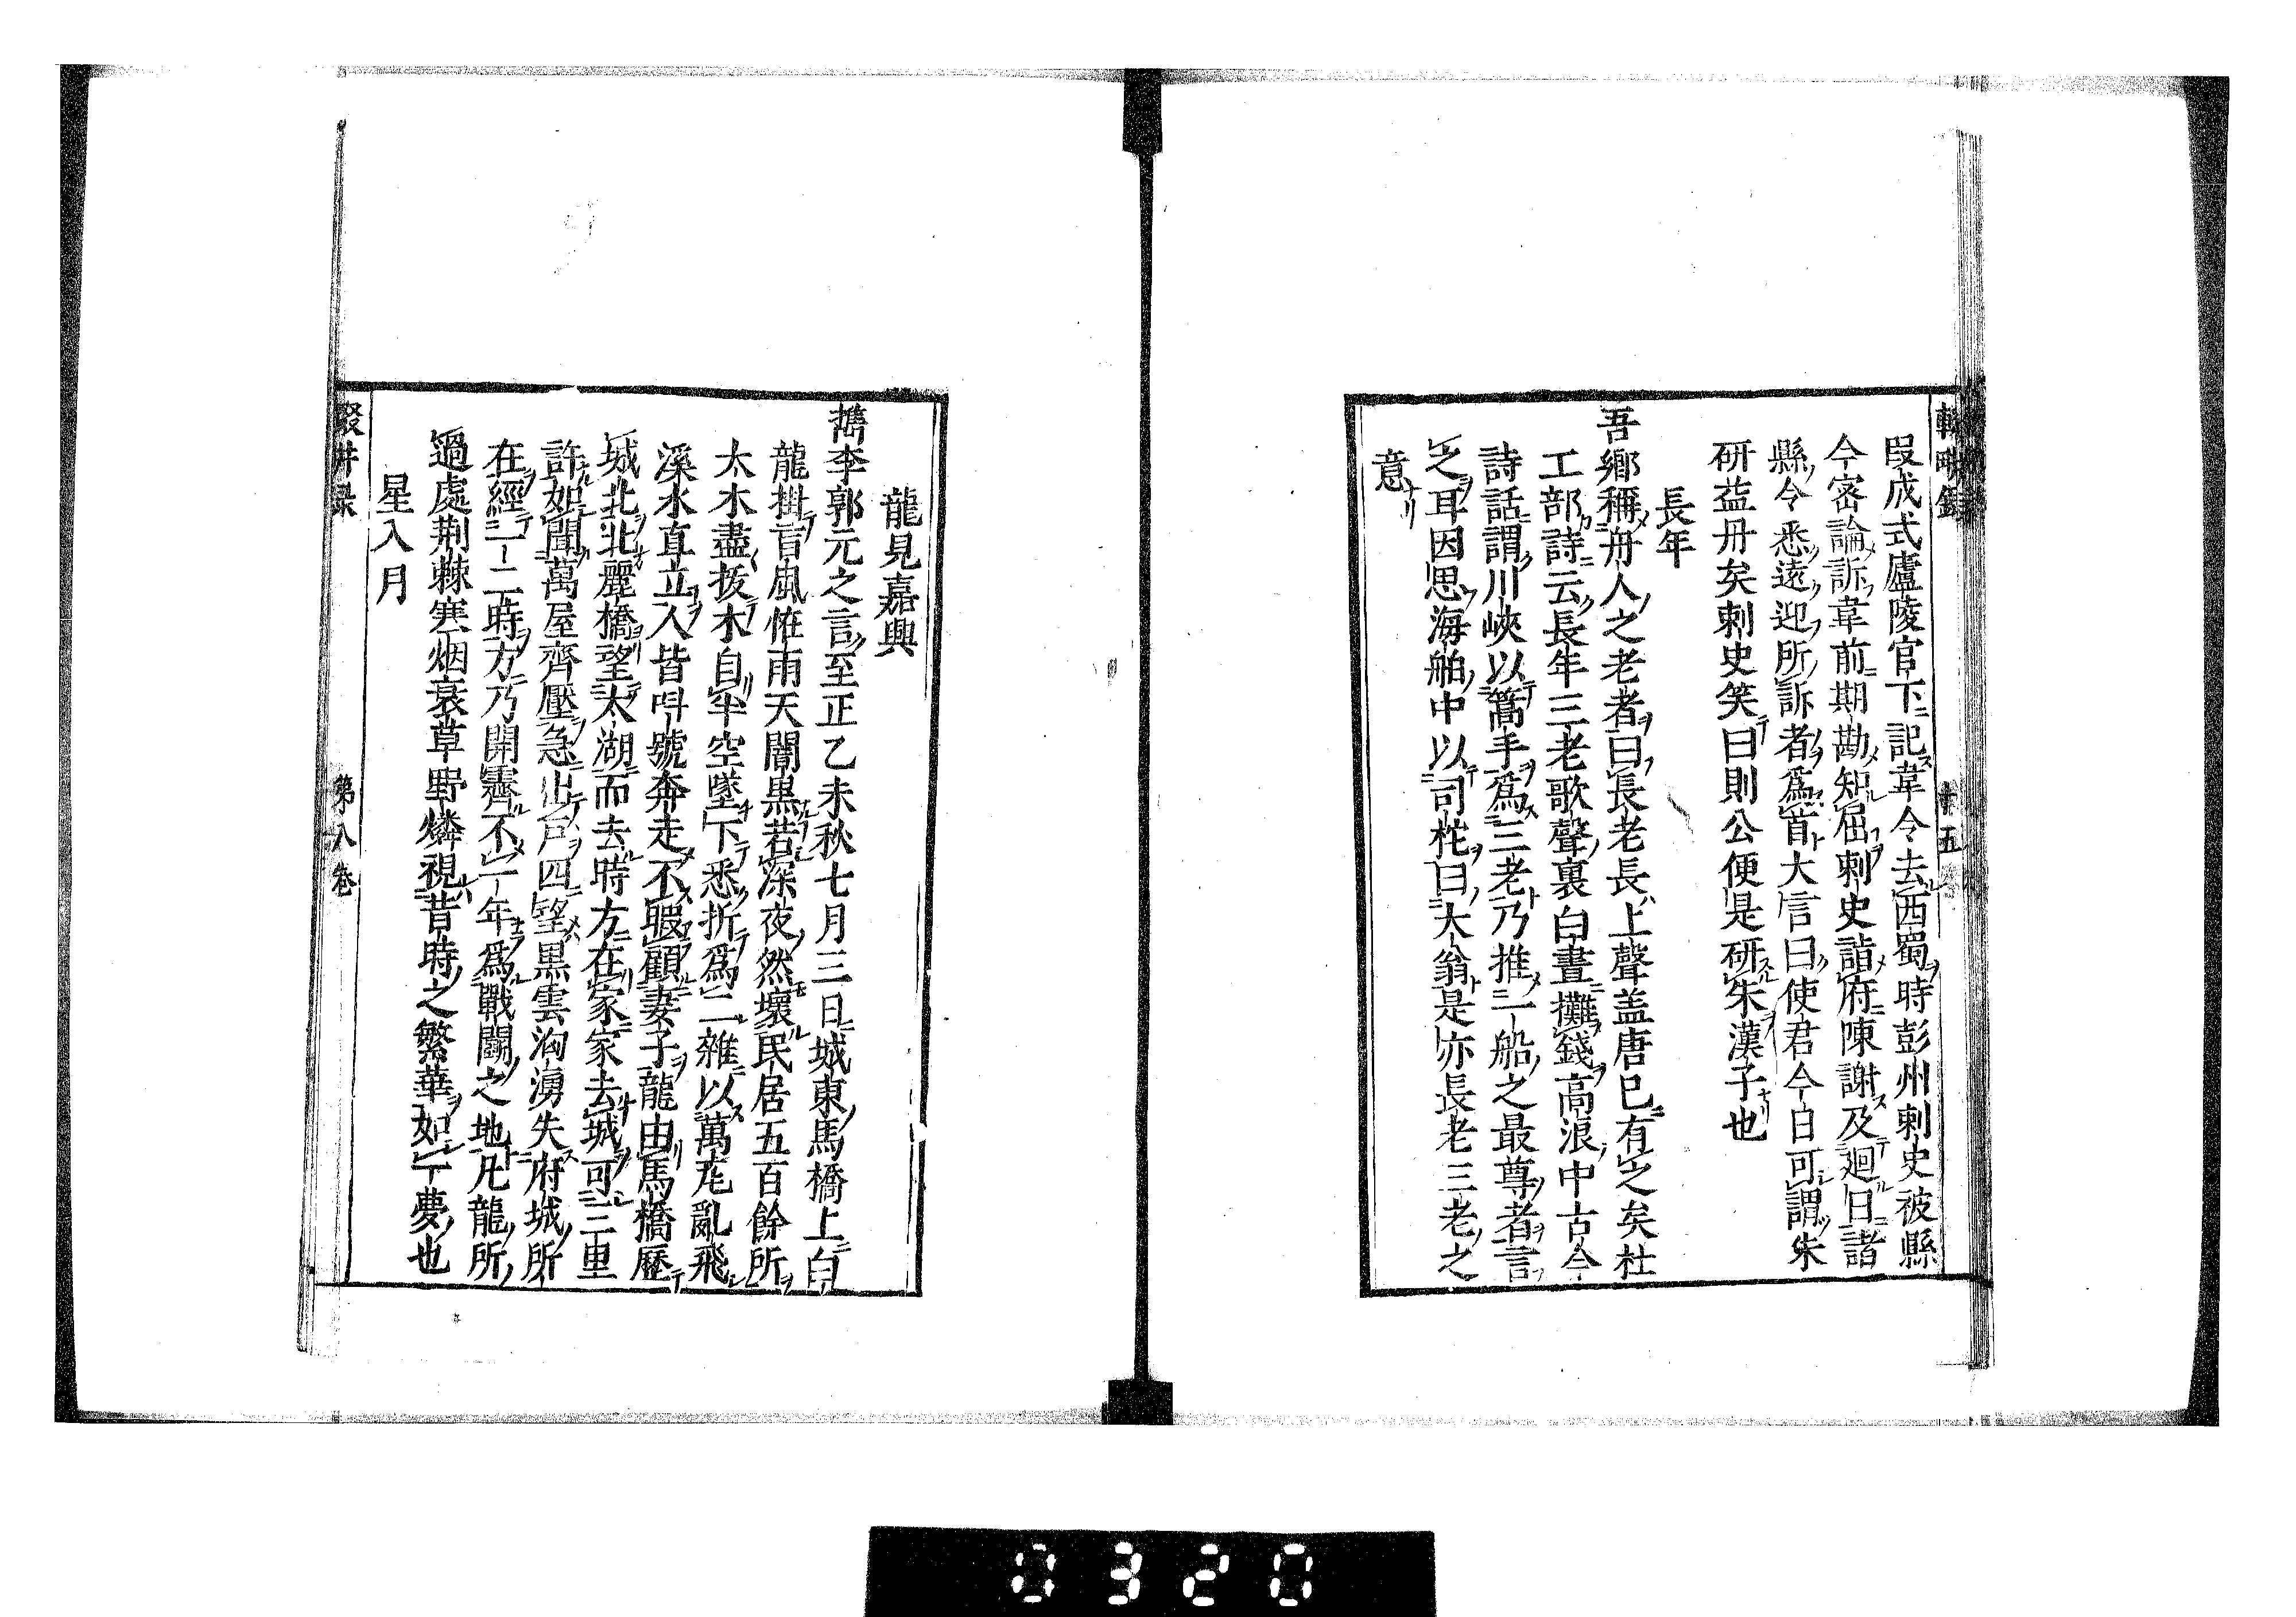 輟畊錄 十五
段成式廬陵官下記韋令去西蜀時彭州刺史被縣
令密論訴韋前期勘知屈刺史詣府陳謝及廻日諸
縣令悉遠迎所訴者爲首大言曰使君今日可謂朱
研益丹矣刺史笑曰則公便是研朱漢子也
長年
吾鄉稱舟人之老者曰長老長上聲盖唐已有之矣杜
工部詩云長年三老歌聲裏白晝攤錢高浪中古今
詩話謂川峽以篙手爲三老乃推一船之最尊者言
之耳因思海舶中以司柁曰大翁是亦長老三老之
意
龍見嘉興
檇李郭元之言至正乙未秋七月三日城東馬橋上白
龍掛盲風恠雨天闇黒若深夜然壞民居五百餘所
大木盡抜木自半空墜下悉折爲二雜以萬瓦亂飛
溪水直立人皆叫號奔走不暇顧妻子龍由馬橋歷
城北北麗橋望太湖而去時方在家家去城可三里
許如聞萬屋齊壓急出戸四望黒雲洶湧失府城所
在經一二時方乃開霽不一年爲戰鬭之地凡龍所
過處荆棘寒烟衰草野燐視昔時之繁華如一夢也
星入月
輟畊录 第八巻
0320